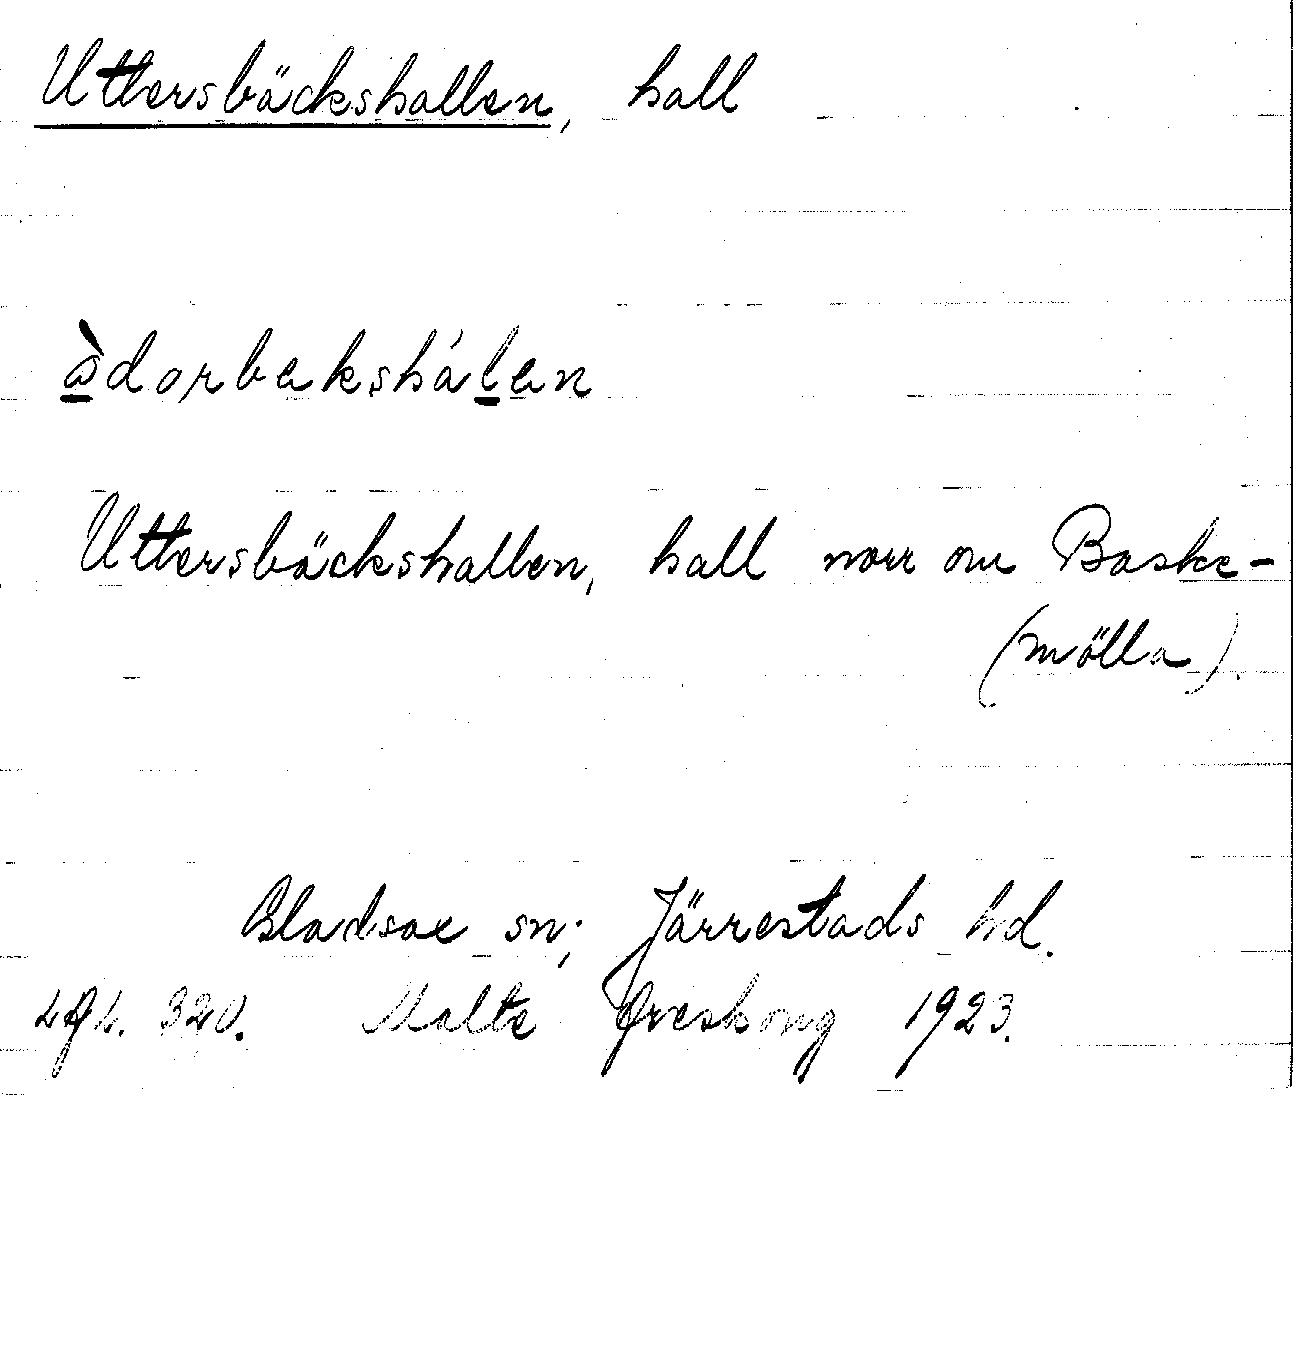 Uttersbäckshallen, hall
àdorbekshálen
Uttersbäckshallen, hall norr om Baske-
(mölla).
Gladsax sn; Järrestads hd.
320. Malte 1923.